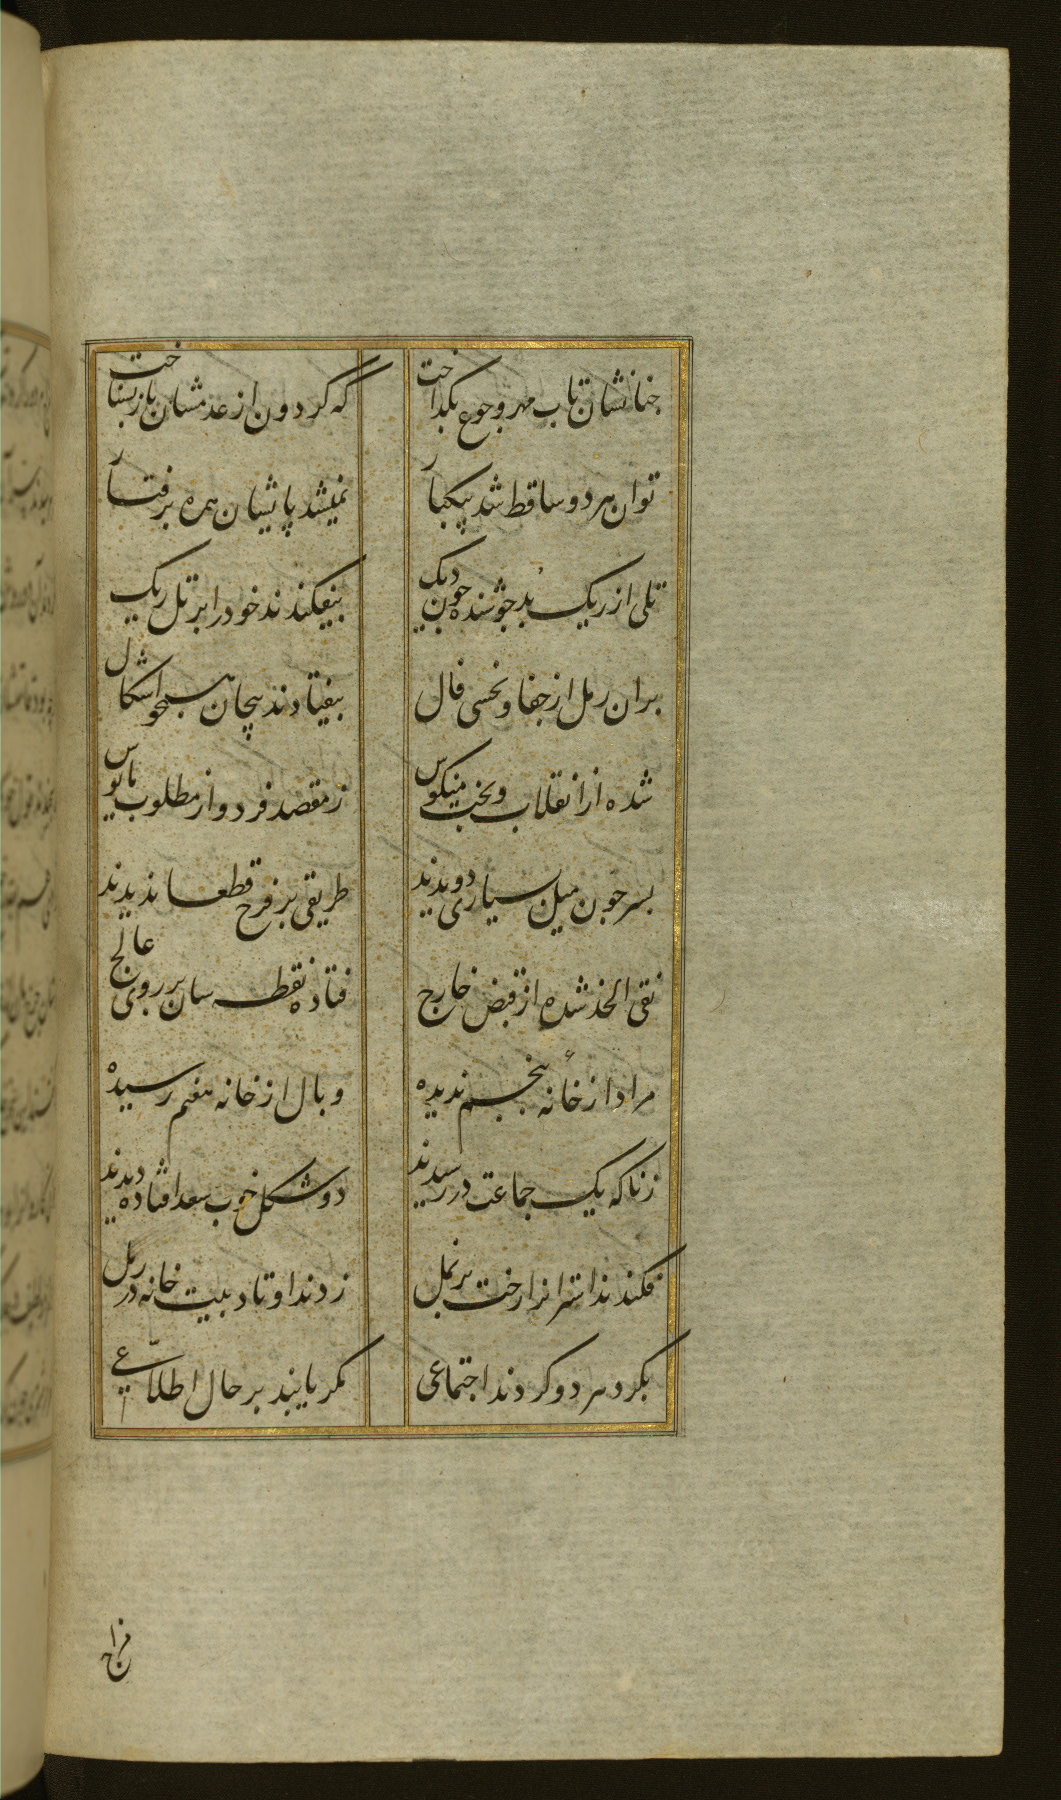 چنانشان تاب مهر و جوع بگداخت
که گردون از عدمشان باز نشناخت
توان هر دو ساقط شد بیکبار
نمیشد پایشان همره برفتار
تلی از ریک بد جوشنده چون دیک
بیفکندند خود را بر تل ریک
بران رمل از جفا و نحسی فال
بیفتادند پیچان همچو اشکال
شده از انقلاب و بخت منکوس
ز مقصد فرد و از مطلوب مایوس
بسر چون میل بسیاری دویدند
طریقی بر فرح قطعا ندیدند
نقی الخد شده از قبض خارج
فتاده نقطه سان بر روی عالج
مراد از خانه پنجم ندیده
وبال از خانه هفتم رسیده
زناکه یک جماعت در رسیدند
دو شکل خوب سعد افتاده دیدند
فکندند اشترانرا رخت بر نمل
زدند اوتاد بیت خانه در رمل
بگرد هر دو کردند اجتماعی
مگر یابند بر حال اطلاعی